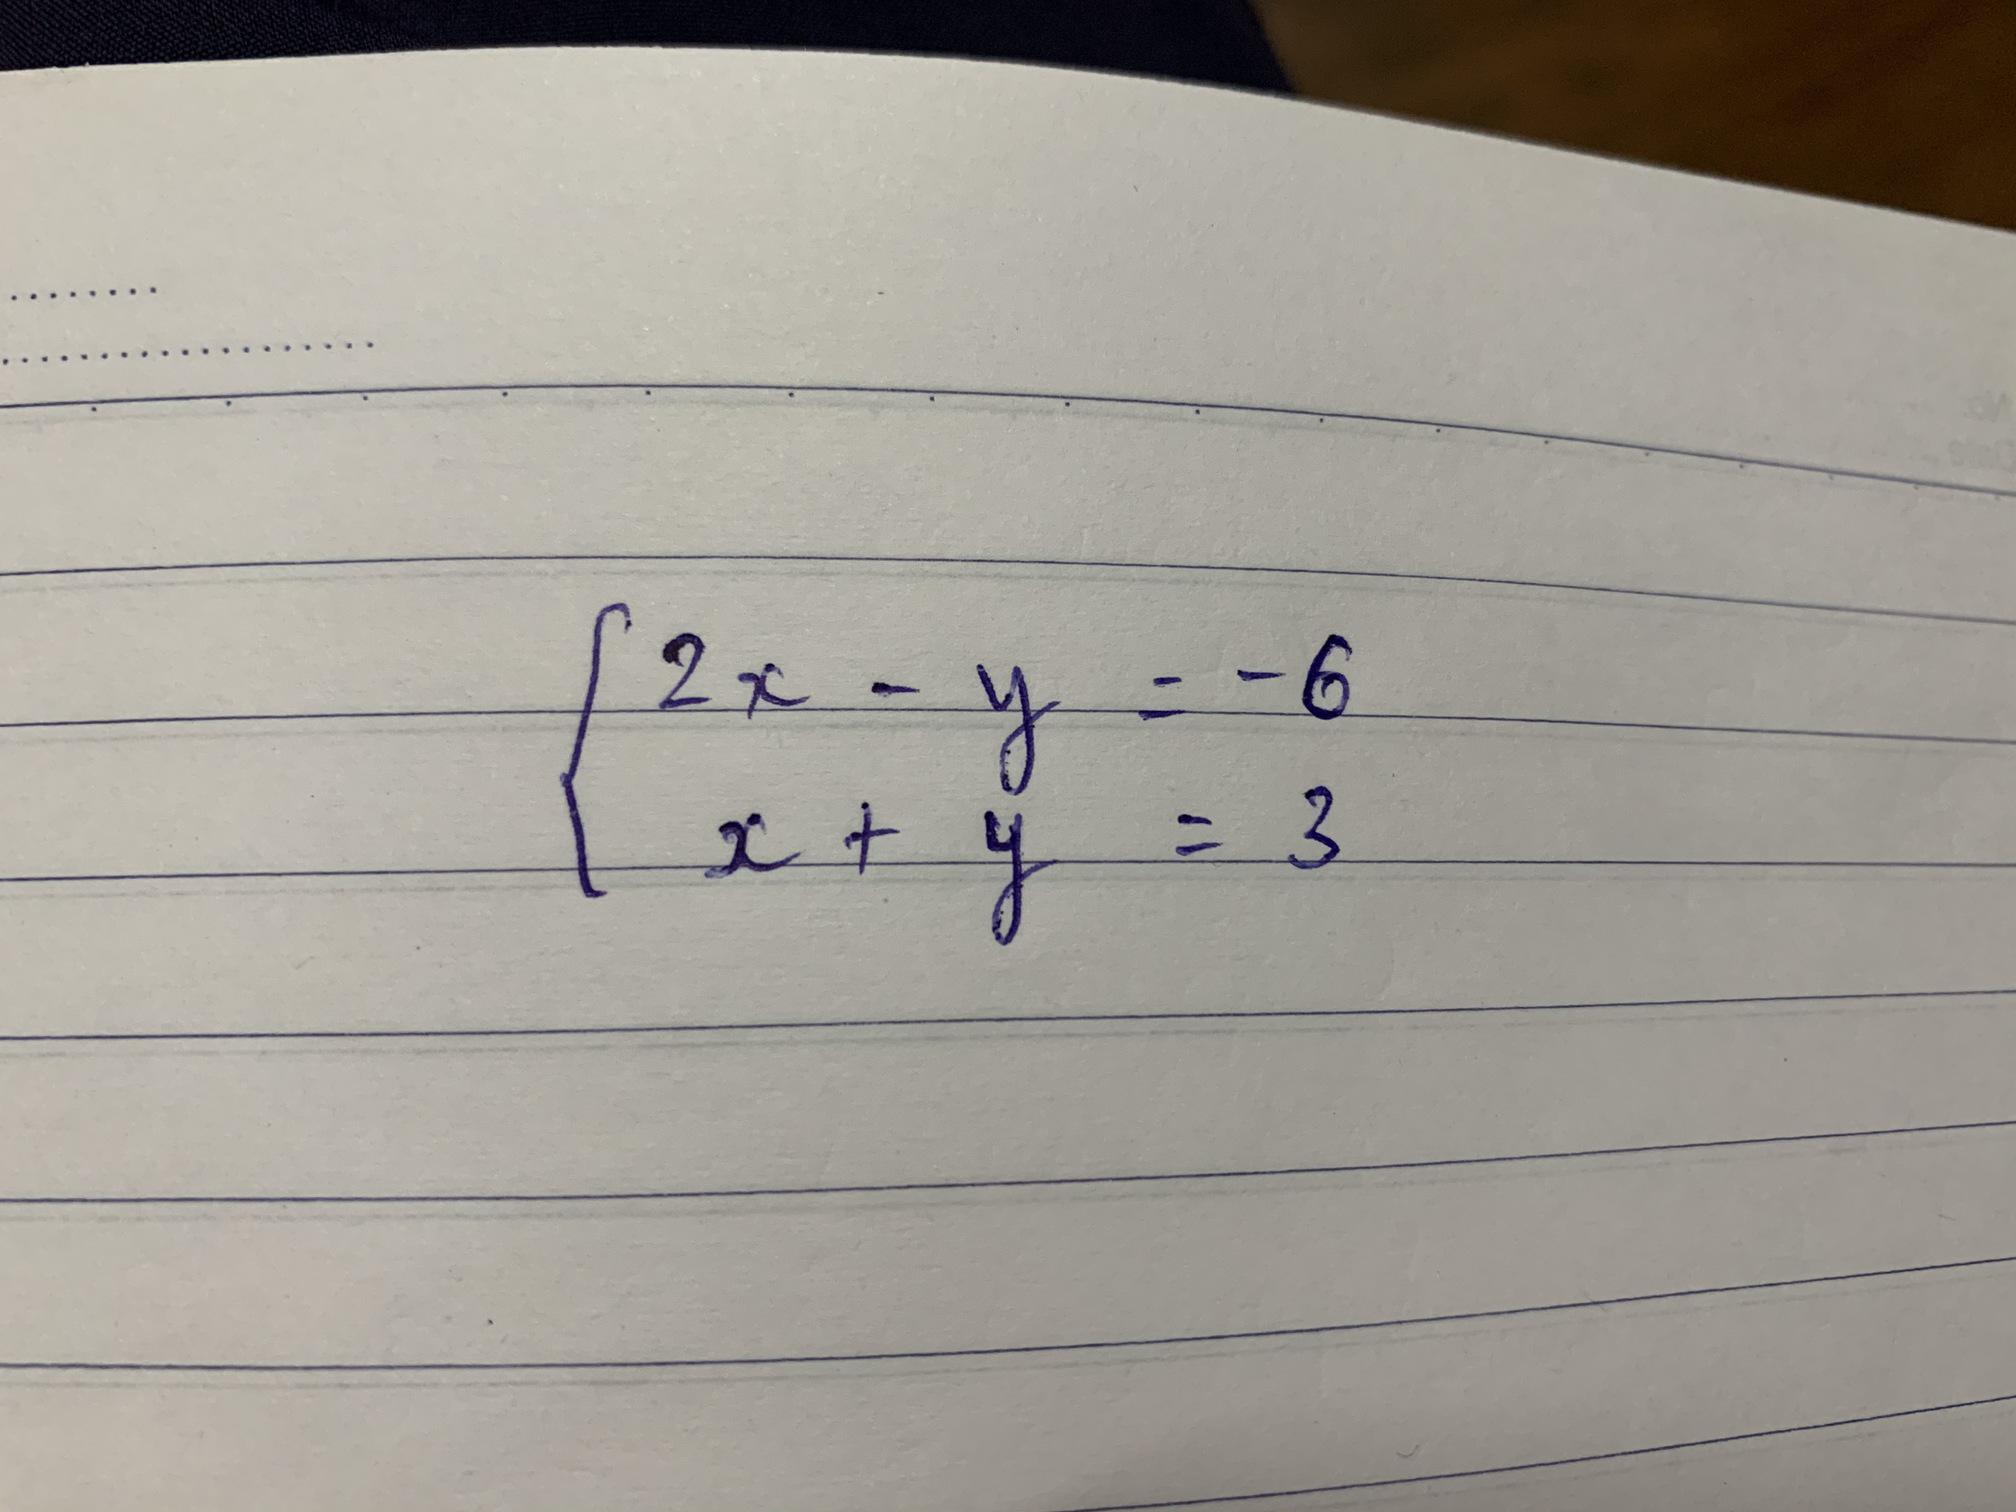 2x - y = -6
x + y = 3